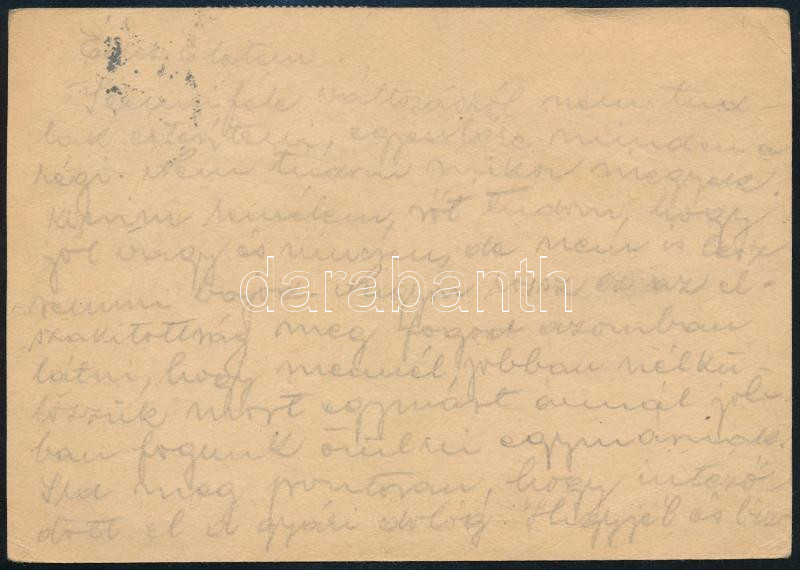 Édes Életem.
Semmiféle változásról nem tud-
lak értesíteni, egyenlőre minden a
régi. Nem tudom mikor megyek
Kicsim remélem, sőt tudom, hogy
jól vagy és nincsen, de nem is lesz
semmi bajod. Nagyon rossz ez az el-
szakítottság meg fogod azomban
látni, hogy mennél jobban nélkü-
lözzük most egymást annál job-
ban fogunk örülni egymásnak.
Írd meg pontosan, hogy intéző-
dött el a gyári dolog. Higyjél és bízz
darabanth